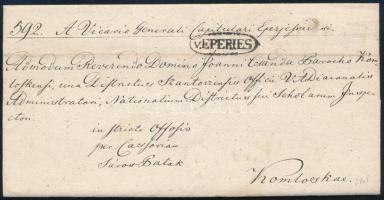 592. A Vicario Generali Capitulari Eperjessiensi
v. EPERIES
Admodum Reverendo Domino Joanni Csanda Parocho Kom
loskensi, una Districtus Officii V. A. Diaconatus
Administratori, Nationalium Districtus sui Scholarum Inspe
ctori.
in Officiosis
per Cassoviam
Sáros Patak
Komloskae.